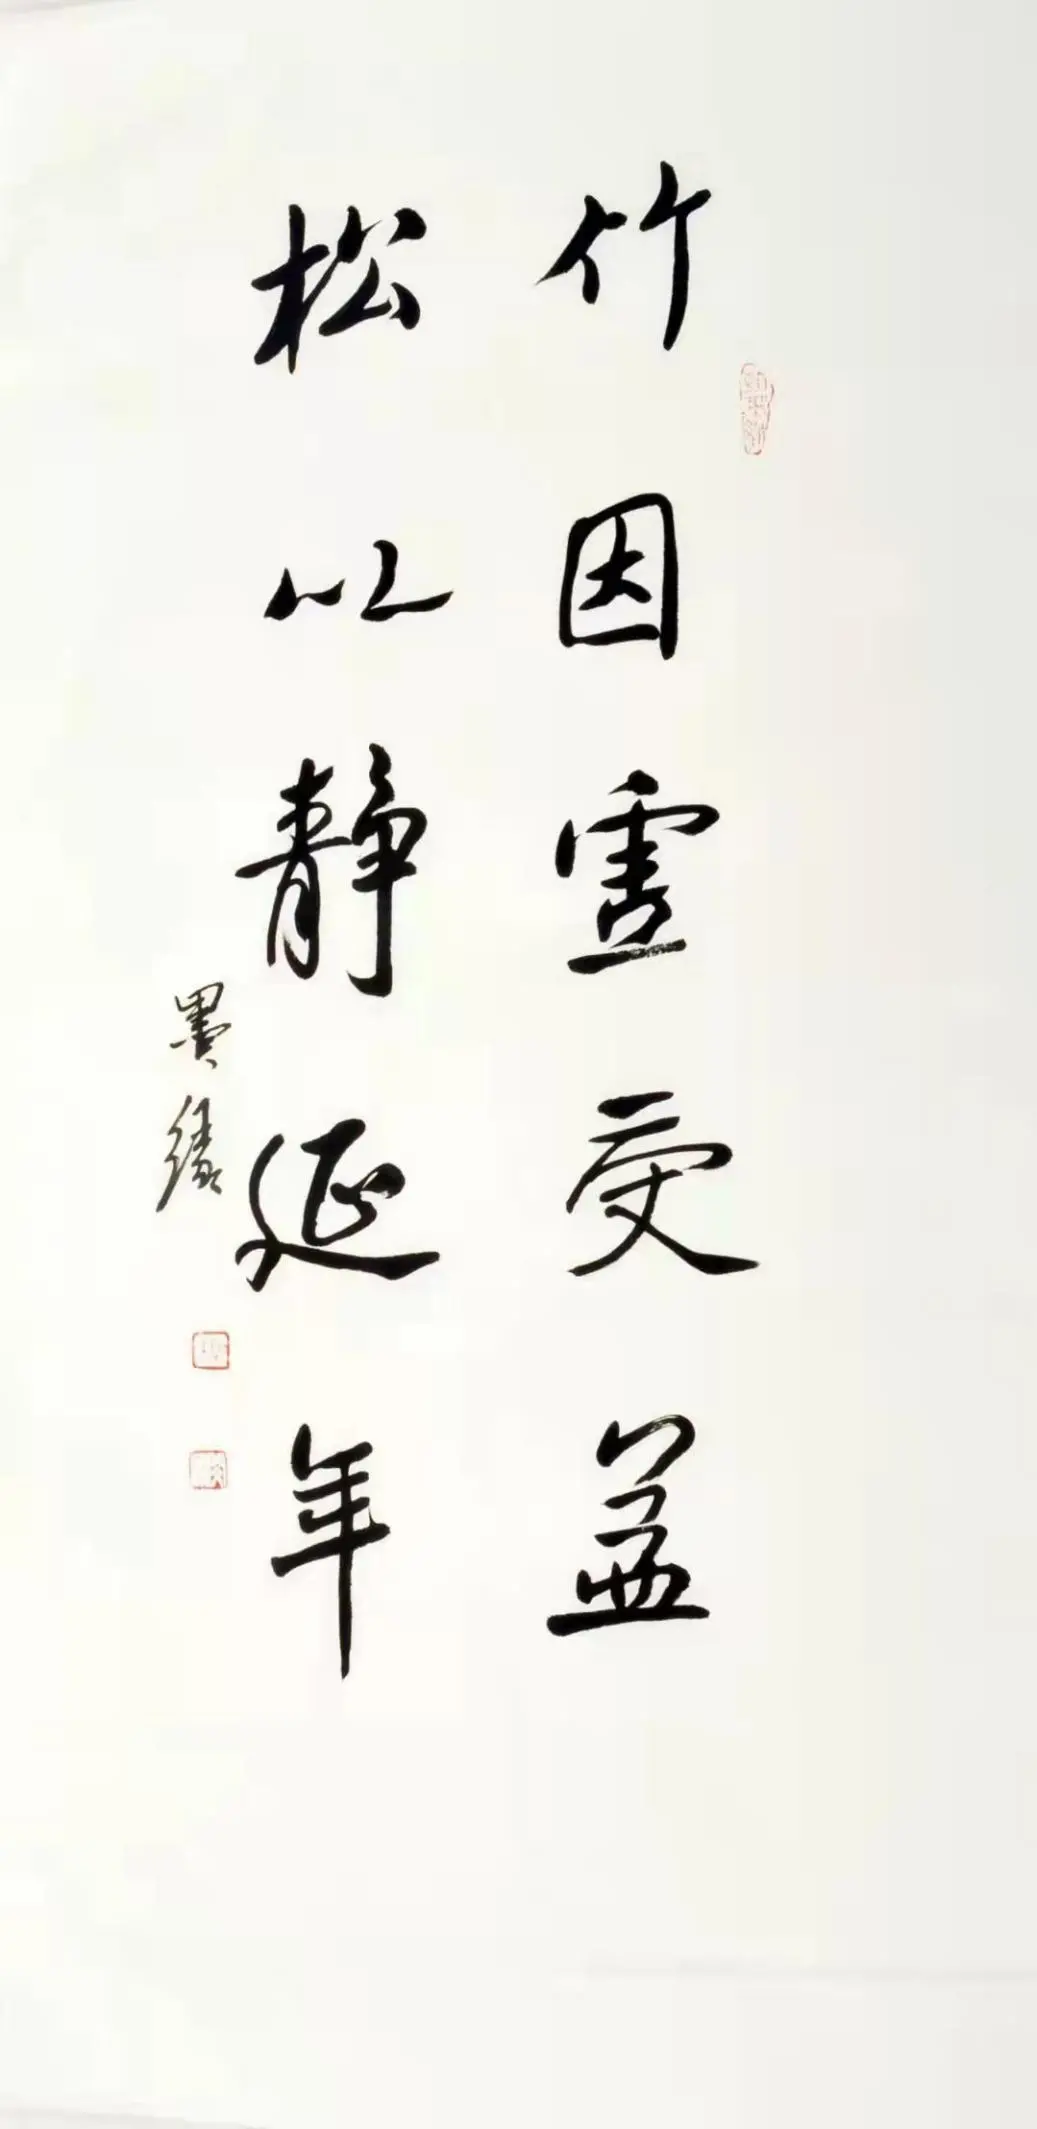 竹因虚受益
松以静延年
墨缘